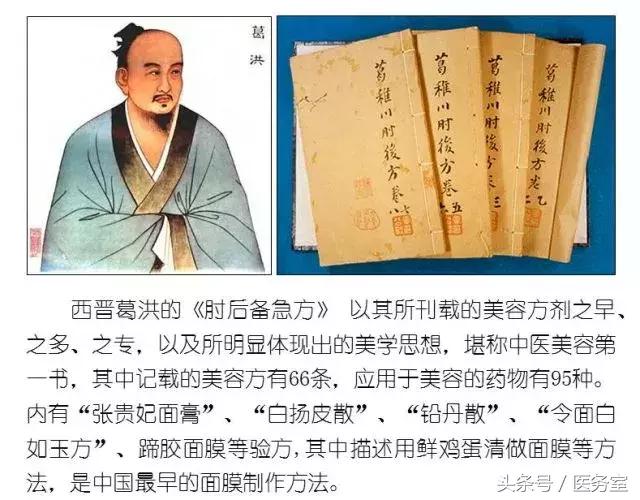 葛洪
葛稚川肘後方卷八七
葛稚川肘後方卷六五
葛稚川肘後方
三
葛稚川肘後方卷乙
二
西晋葛洪的《肘后备急方》 以其所刊载的美容方剂之早、
之多、之专，以及所明显体现出的美学思想，堪称中医美容第
一书，其中记载的美容方有66条，应用于美容的药物有95种。
内有“张贵妃面膏”、“白扬皮散”、“铅丹散”、“令面白
如玉方”、蹄胶面膜等验方,其中描述用鲜鸡蛋清做面膜等方
法，是中国最早的面膜制作方法。
头条号／医务室